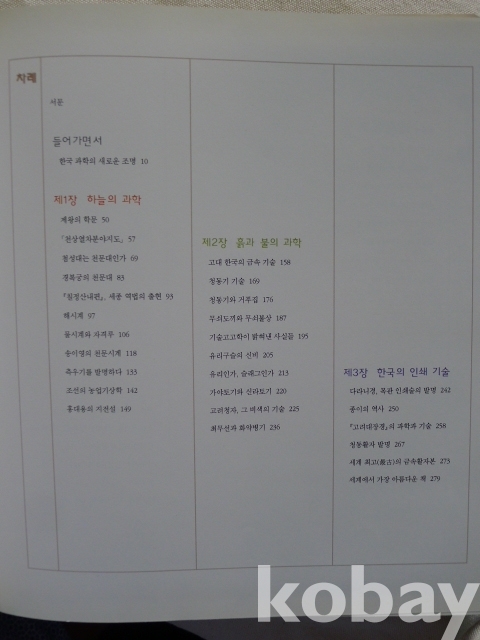 차례
서문
들어가면서
한국 과학의 새로운 조명 10
제1장 하늘의 과학
제왕의 학문 50
「천상열차분야지도」 57
첨성대는 천문대인가 69
경복궁의 천문대 83
『칠정산내편』, 세종 역법의 출현 93
해시계 97
물시계와 자격루 106
송이영의 천문시계 118
측우기를 발명하다 133
조선의 농업기상학 142
홍대용의 지전설 149
제2장 흙과 불의 과학
고대 한국의 금속 기술 158
청동기 기술 169
청동기와 거푸집 176
무쇠도끼와 무쇠불상 187
기술고고학이 밝혀낸 사실들 195
유리구슬의 신비 205
유리인가, 슬래그인가 213
가야토기와 신라토기 220
고려청자, 그 비색의 기술 225
최무선과 화약병기 236
제3장 한국의 인쇄 기술
다라니경, 목판 인쇄술의 발명 242
종이의 역사 250
『고려대장경』의 과학과 기술 258
청동활자 발명 267
세계 최고(最古)의 금속활자본 273
세계에서 가장 아름다운 책 279
kobay